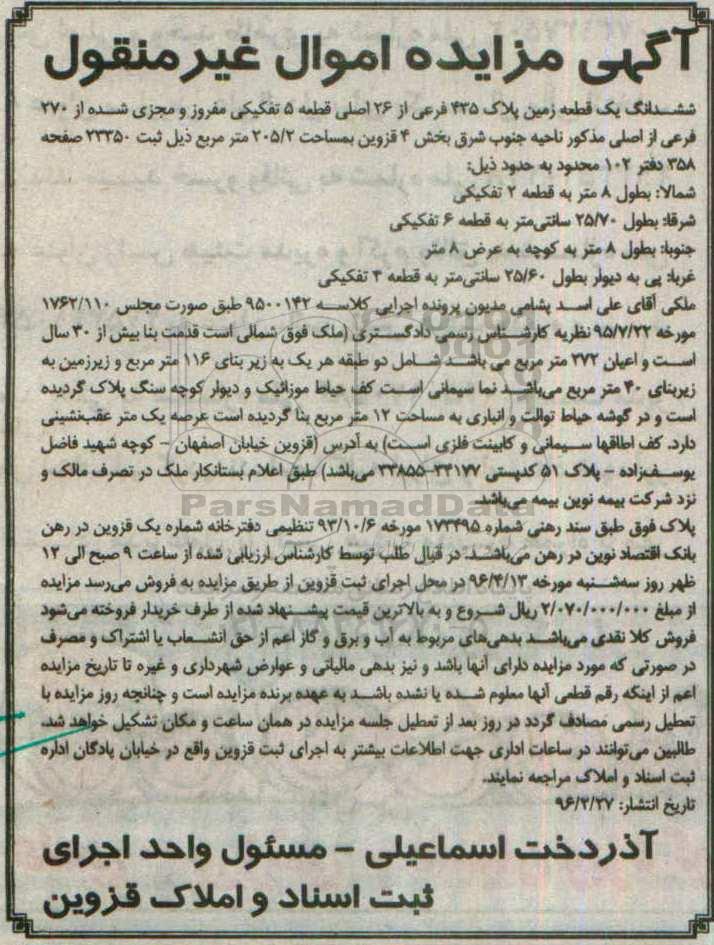 آگهی مزایده اموال غیرمنقول
ششدانگ یک قطعه زمین پلاک ۴۳۵ فرعی از ۲۶ اصلی قطعه ۵ تفکیکی مفروز و مجزی شده از ۲۷۰
فرعی از اصلی مذکور ناحیه جنوب شرق بخش ۴ قزوین بمساحت ۲۰۵/۲ متر مربع ذیل ثبت ۲۳۳۵۰ صفحه
۳۵۸ دفتر ۱۰۲ محدود به حدود ذیل:
شمالا: بطول ۸ متر به قطعه ۲ تفکیکی
شرقا: بطول ۲۵/۷۰ سانتی‌متر به قطعه ۶ تفکیکی
جنوبا: بطول ۸ متر به کوچه به عرض ۸ متر
غربا: پی به دیوار بطول ۲۵/۶۰ سانتی‌متر به قطعه ۴ تفکیکی
ملکی آقای علی اسد پشامی مدیون پرونده اجرایی کلاسه ۹۵۰۰۱۴۲ طبق صورت مجلس ۱۷۶۲/۱۱۰
مورخه ۹۵/۷/۲۲ نظریه کارشناس رسمی دادگستری (ملک فوق شمالی است قدمت بنا بیش از ۳۰ سال
است و اعیان ۲۷۲ متر مربع می باشد شامل دو طبقه هر یک به زیر بنای ۱۱۶ متر مربع و زیرزمین به
زیربنای ۴۰ متر مربع می‌باشد نما سیمانی است کف حیاط موزائیک و دیوار کوچه سنگ پلاک گردیده
است و در گوشه حیاط توالت و انباری به مساحت ۱۲ متر مربع بنا گردیده است عرصه یک متر عقب‌نشینی
دارد. کف اطاقها سیمانی و کابینت فلزی است) به آدرس (قزوین خیابان اصفهان - کوچه شهید فاضل
یوسف‌زاده - پلاک ۵۱ کدپستی ۳۴۱۷۷-۳۳۸۵۵ می‌باشد) طبق اعلام بستانکار ملک در تصرف مالک و
نزد شرکت بیمه نوین بیمه می‌باشد.
ParsNamadData
پلاک فوق طبق سند رهنی شماره ۱۷۳۴۹۵ مورخه ۹۳/۱۰/۶ تنظیمی دفترخانه شماره یک قزوین در رهن
بانک اقتصاد نوین در رهن می‌باشد. در قبال طلب توسط کارشناس ارزیابی شده از ساعت ۹ صبح الی ۱۲
ظهر روز سه‌شنبه مورخه ۹۶/۴/۱۳ در محل اجرای ثبت قزوین از طریق مزایده به فروش می‌رسد مزایده
از مبلغ ۲/۰۷۰/۰۰۰/۰۰۰ ریال شروع و به بالاترین قیمت پیشنهاد شده از طرف خریدار فروخته می‌شود
فروش کلا نقدی می‌باشد بدهی‌های مربوط به آب و برق و گاز اعم از حق انشعاب یا اشتراک و مصرف
در صورتی که مورد مزایده دارای آنها باشد و نیز بدهی مالیاتی و عوارض شهرداری و غیره تا تاریخ مزایده
اعم از اینکه رقم قطعی آنها معلوم شده یا نشده باشد به عهده برنده مزایده است و چنانچه روز مزایده با
تعطیل رسمی مصادف گردد در روز بعد از تعطیل جلسه مزایده در همان ساعت و مکان تشکیل خواهد شد.
طالبین می‌توانند در ساعات اداری جهت اطلاعات بیشتر به اجرای ثبت قزوین واقع در خیابان پادگان اداره
ثبت اسناد و املاک مراجعه نمایند.
تاریخ انتشار: ۹۶/۳/۲۷
آذردخت اسماعیلی - مسئول واحد اجرای
ثبت اسناد و املاک قزوین